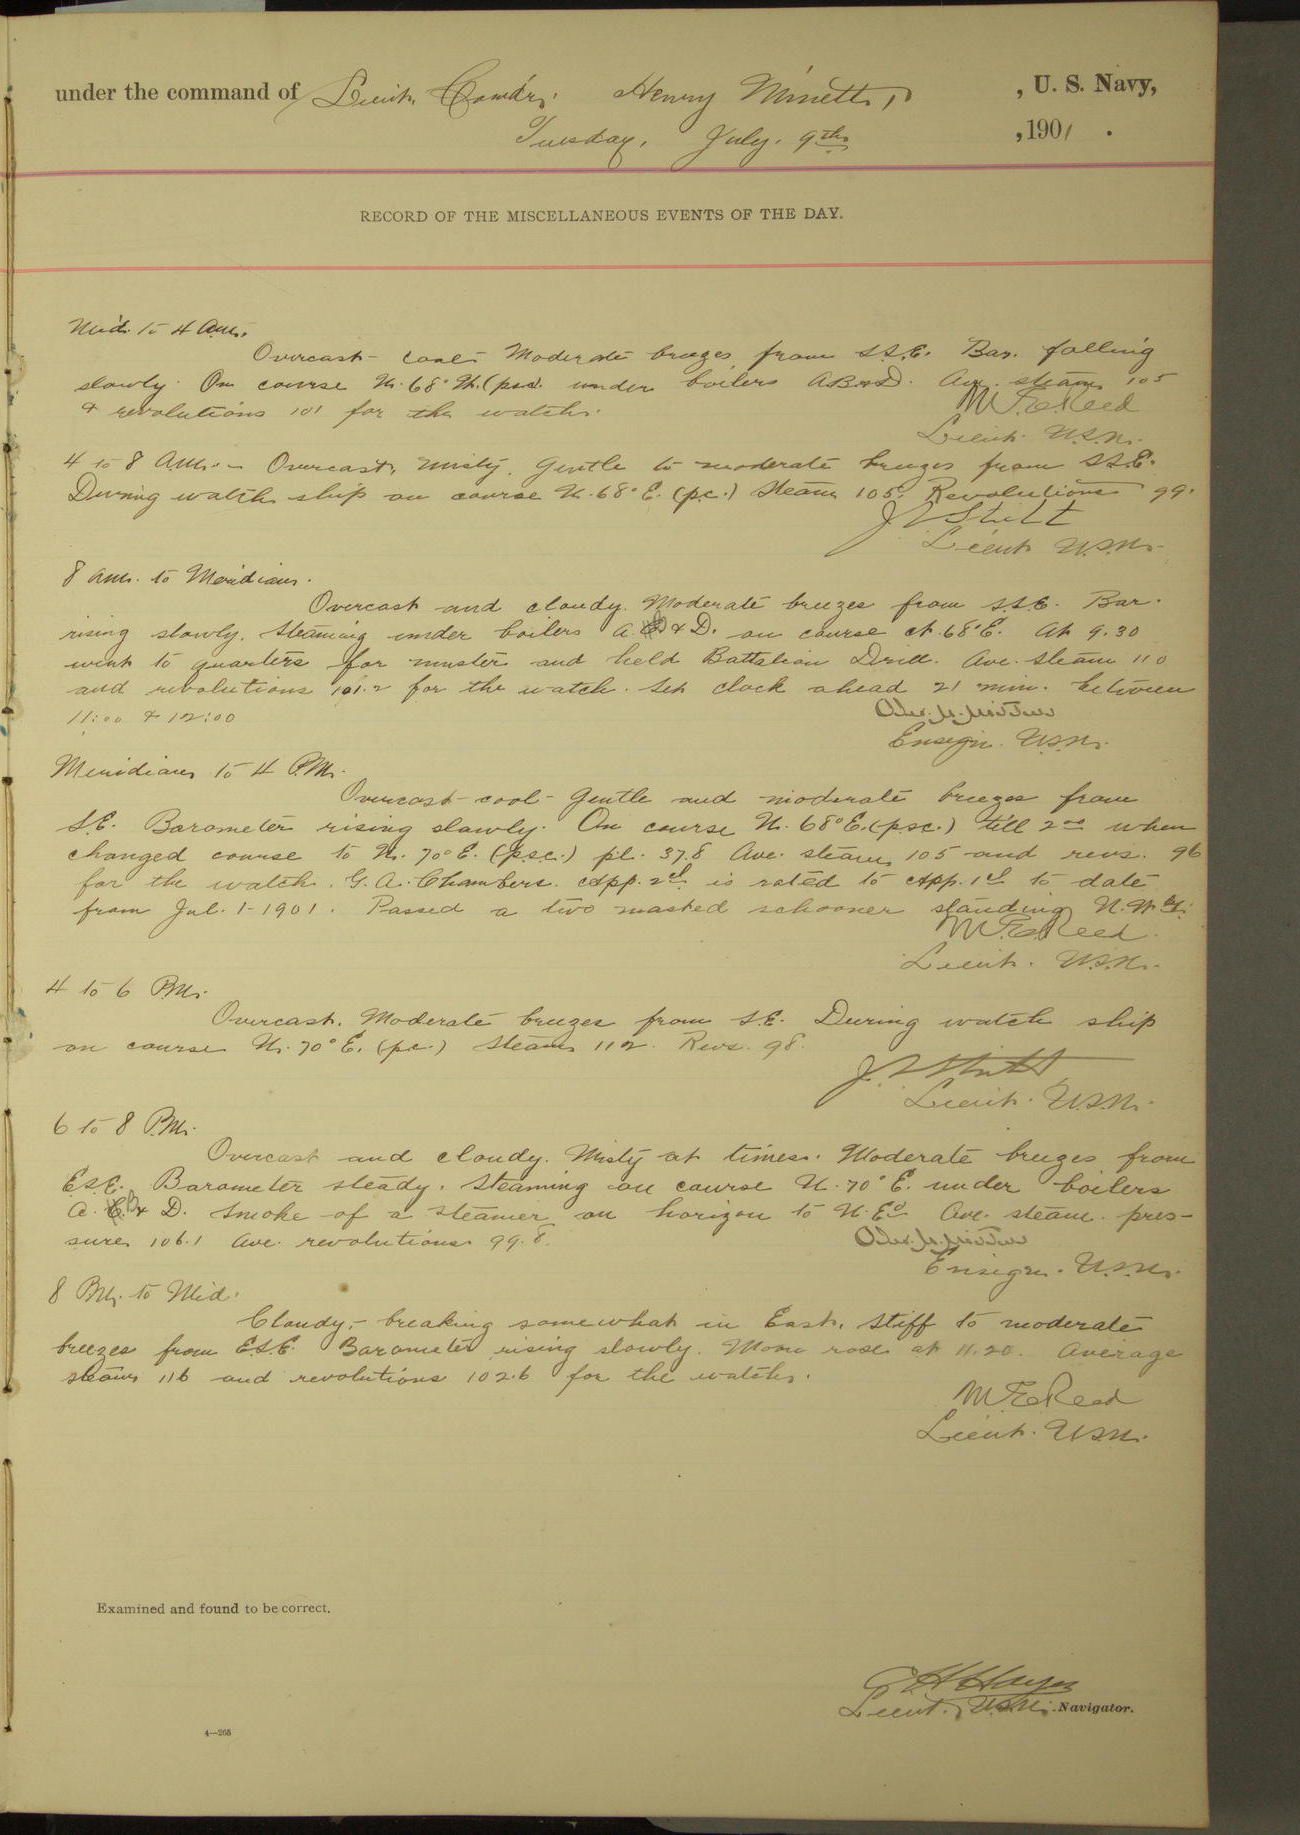 under the command of Lieut. Comdr. Henry Minett, , U. S. Navy,
Tuesday, July. 9th ,1901 .
RECORD OF THE MISCELLANEOUS EVENTS OF THE DAY.
Mid. to 4 A.M.
Overcast - cool - Moderate breezes from S.S.E. Bar. falling
slowly. On course N. 68° W. (psc). under boilers A.B. & D. Ave. steam 105
& revolutions 101 for the watch.
M E Reed
Lieut. U.S.N.
4 to 8 A.M. - Overcast, misty. Gentle to moderate breezes from S.S.E.
During watch ship on course N. 68° E. (p.c.) Steam 105. Revolutions 99.
Lieut U.S.N.
8 A.M. to Meridian.
Overcast and cloudy. Moderate breezes from S.S.E. Bar.
rising slowly. Steaming under boilers A. B & D. on course N. 68° E. At 9.30
went to quarters for muster and held Battalion Drill. Ave. Steam 110
and revolutions 101.2 for the watch. Set clock ahead 21 min. between
11:00 & 12:00
Ensign. U.S.N.
Meridian to 4 P.M.
Overcast - cool - Gentle and moderate breezes from
S.E. Barometer rising slowly. On course N. 68° E. (p.s.c.) till 2 00 when
changed course to N. 70° E. (p.s.c.) p.l. 37.8 Ave. steam 105 and revs. 96
for the watch. G. A. Chambers. App. 2d is rated to App. 1cl to date
from Jul. 1-1901. Passed a two masted schooner standing N. Wd.
M E Reed.
Lieut. U.S.N.
4 to 6 P.M.
Overcast. Moderate breezes from S.E. During watch ship
on course N. 70° E. (p.c.) Steam 112. Revs. 98.
Lieut. U.S.N.
6 to 8 P.M.
Overcast and cloudy. Misty at times. Moderate breezes from
E.S.E. Barometer steady. Steaming on course N. 70° E. under boilers
A. B & D. Smoke of a steamer on horizon to N. Ed. Ave. steam pres-
sure 106.1 Ave. revolutions 99.8.
Ensign. U.S.N.
8 P.M. to Mid.
Cloudy, - breaking somewhat in East. Stiff to moderate
breezes from E.S.E. Barometer rising slowly. Moon rose at 11.20. Average
steam 116 and revolutions 102.6 for the watch.
M E Reed
Lieut. U.S.N.
Examined and found to be correct.
C H Hayes
Lieut. U.S.N. Navigator.
4—268